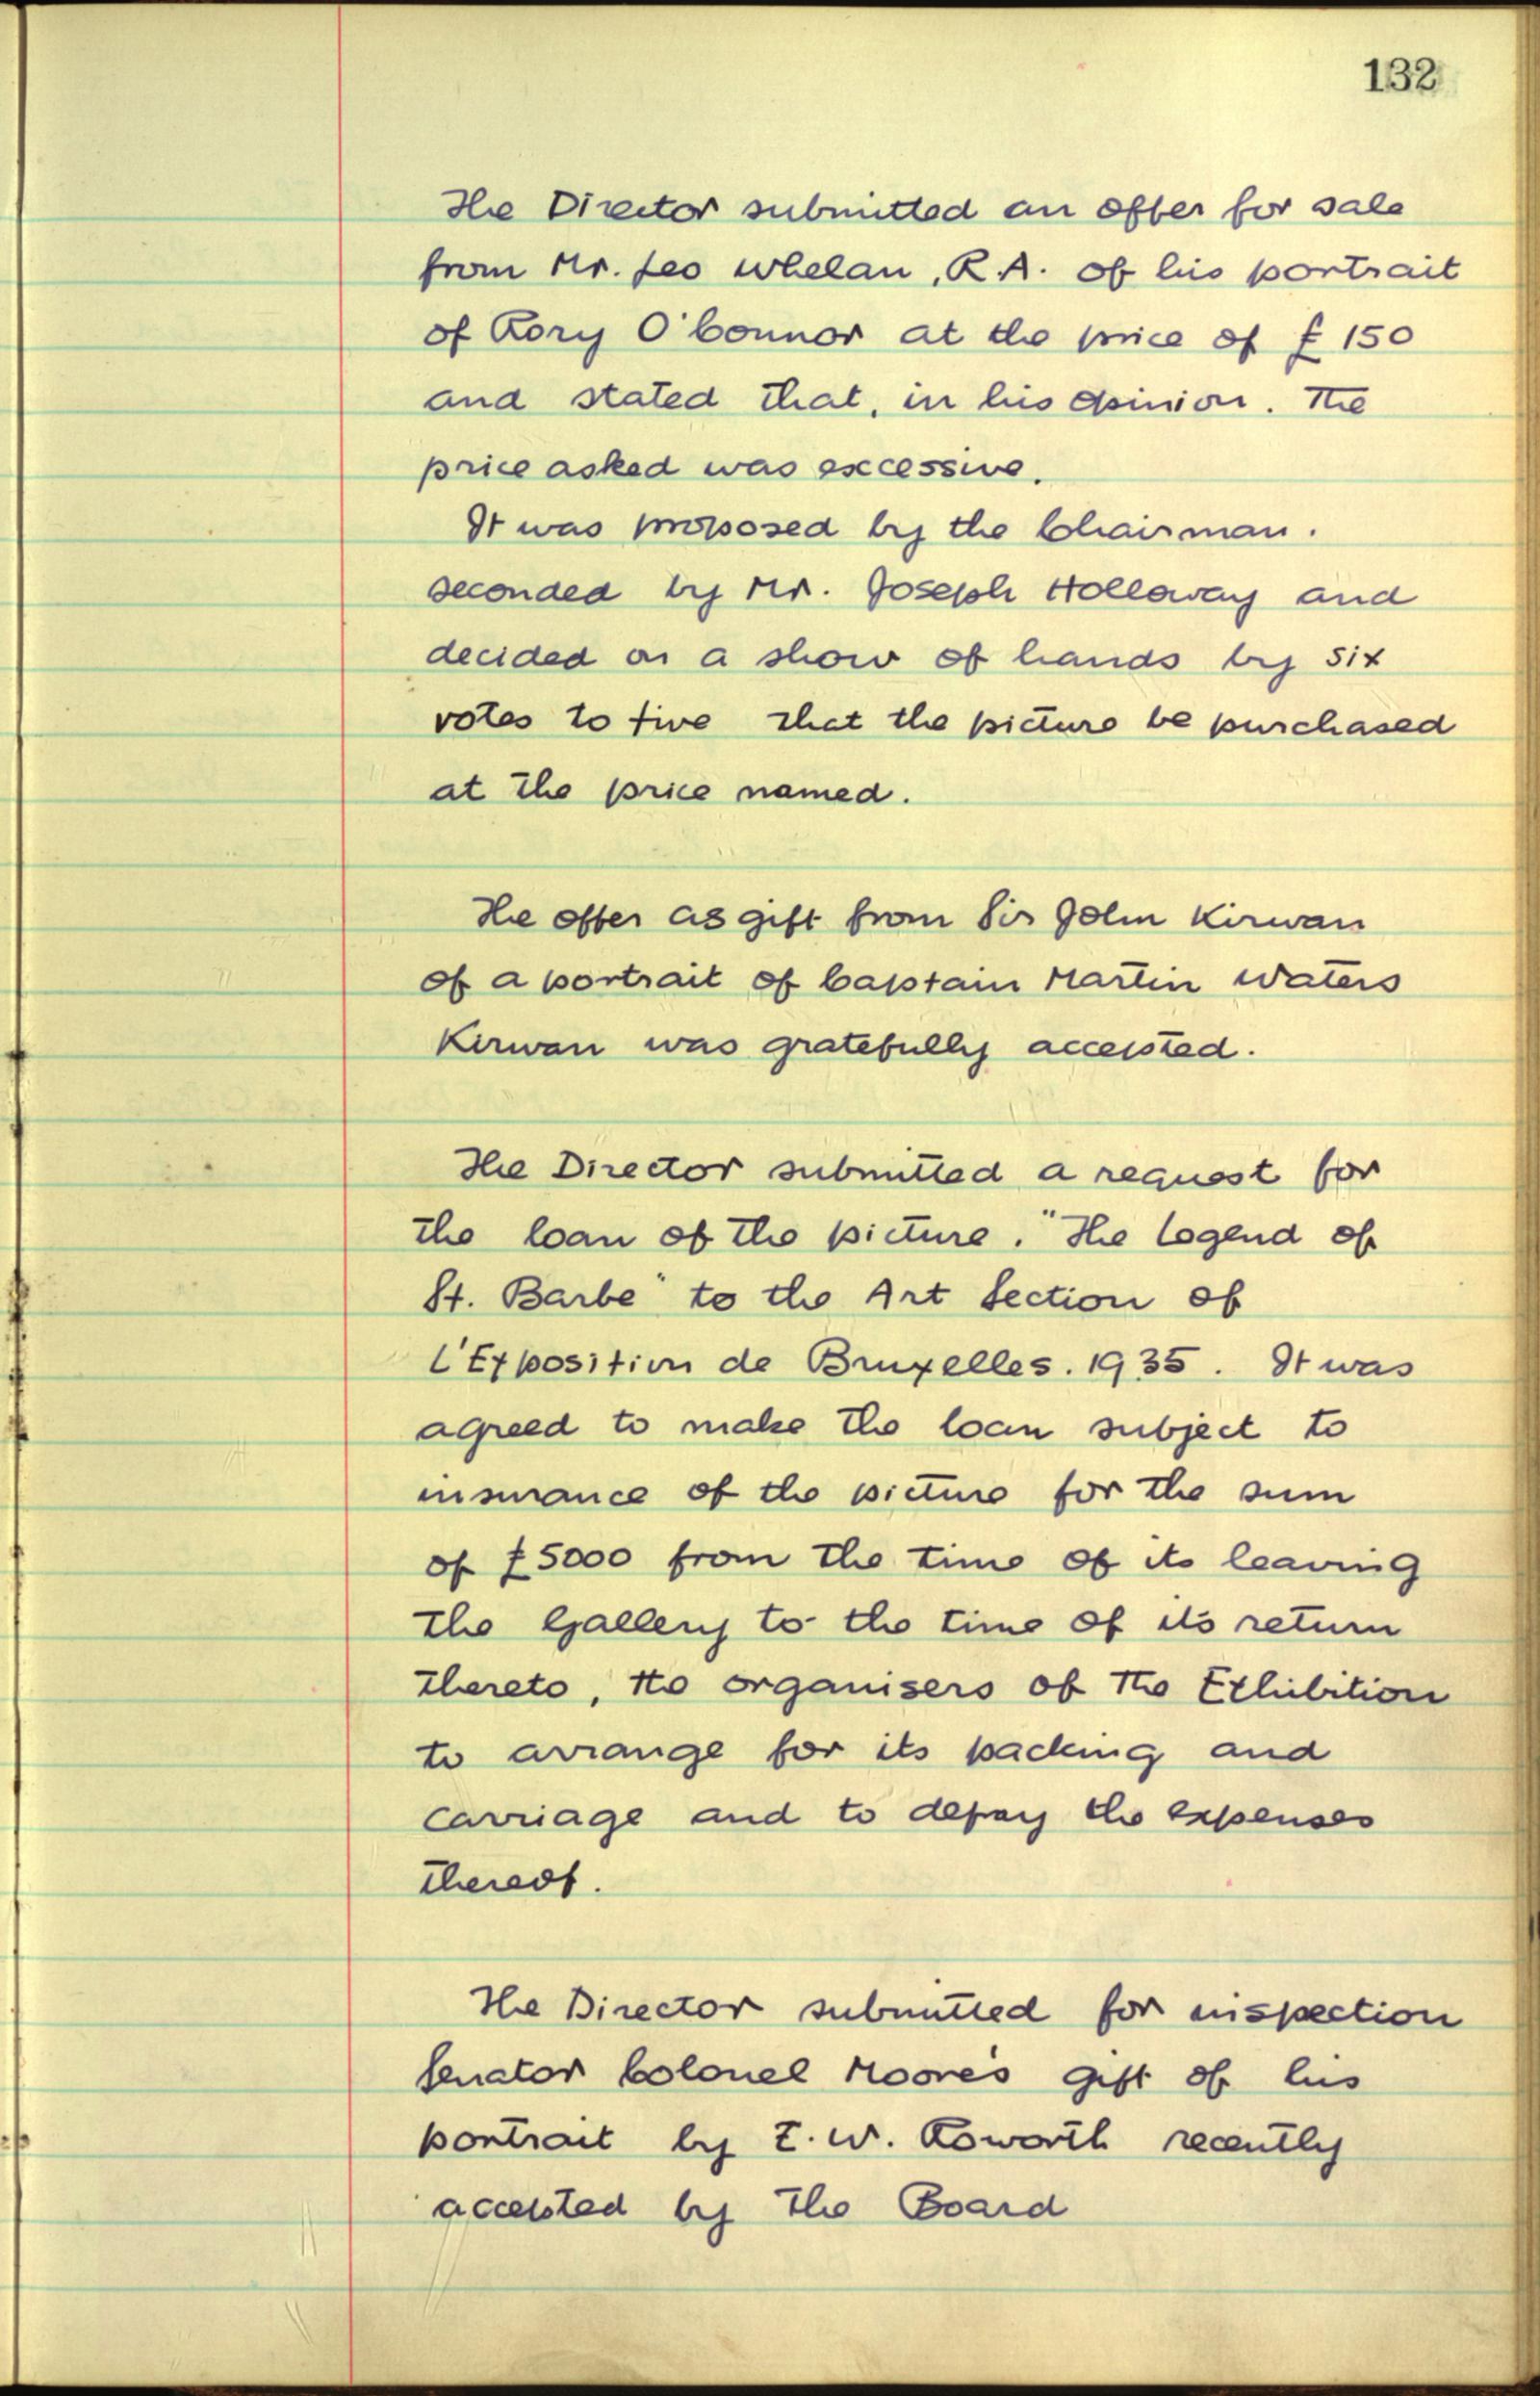 132
The Director submitted an offer for sale
from Mr. Leo Whelan, R.A. of his portrait
of Rory O'Connor at the price of £150
and stated that, in his opinion. The
price asked was excessive.
It was proposed by the Chairman.
seconded by Mr. Joseph Holloway and
decided on a show of hands by six
votes to five that the picture be purchased
at the price named.
The offer as gift from Sir John Kirwan
of a portrait of Captain Martin Waters
Kirwan was gratefully accepted.
The Director submitted a request for
the loan of the picture. "The Legend of
St. Barbe" to the Art Section of
L'Exposition de Bruxelles. 1935. It was
agreed to make the loan subject to
insurance of the picture for the sum
of £5000 from the time of its leaving
the Gallery to the time of its return
thereto, the organisers of the Exhibition
to arrange for its packing and
carriage and to defray the expenses
thereof.
The Director submitted for inspection
Senator Colonel Moore's gift of his
portrait by E. W. Roworth recently
accepted by the Board